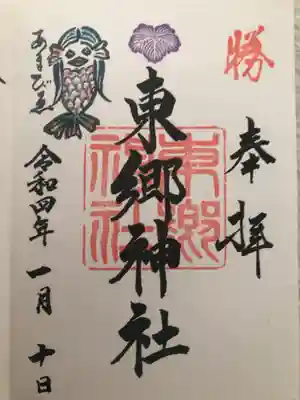 勝
奉拝
東郷神社
東郷神社
あまびゑ
令和四年一月十日